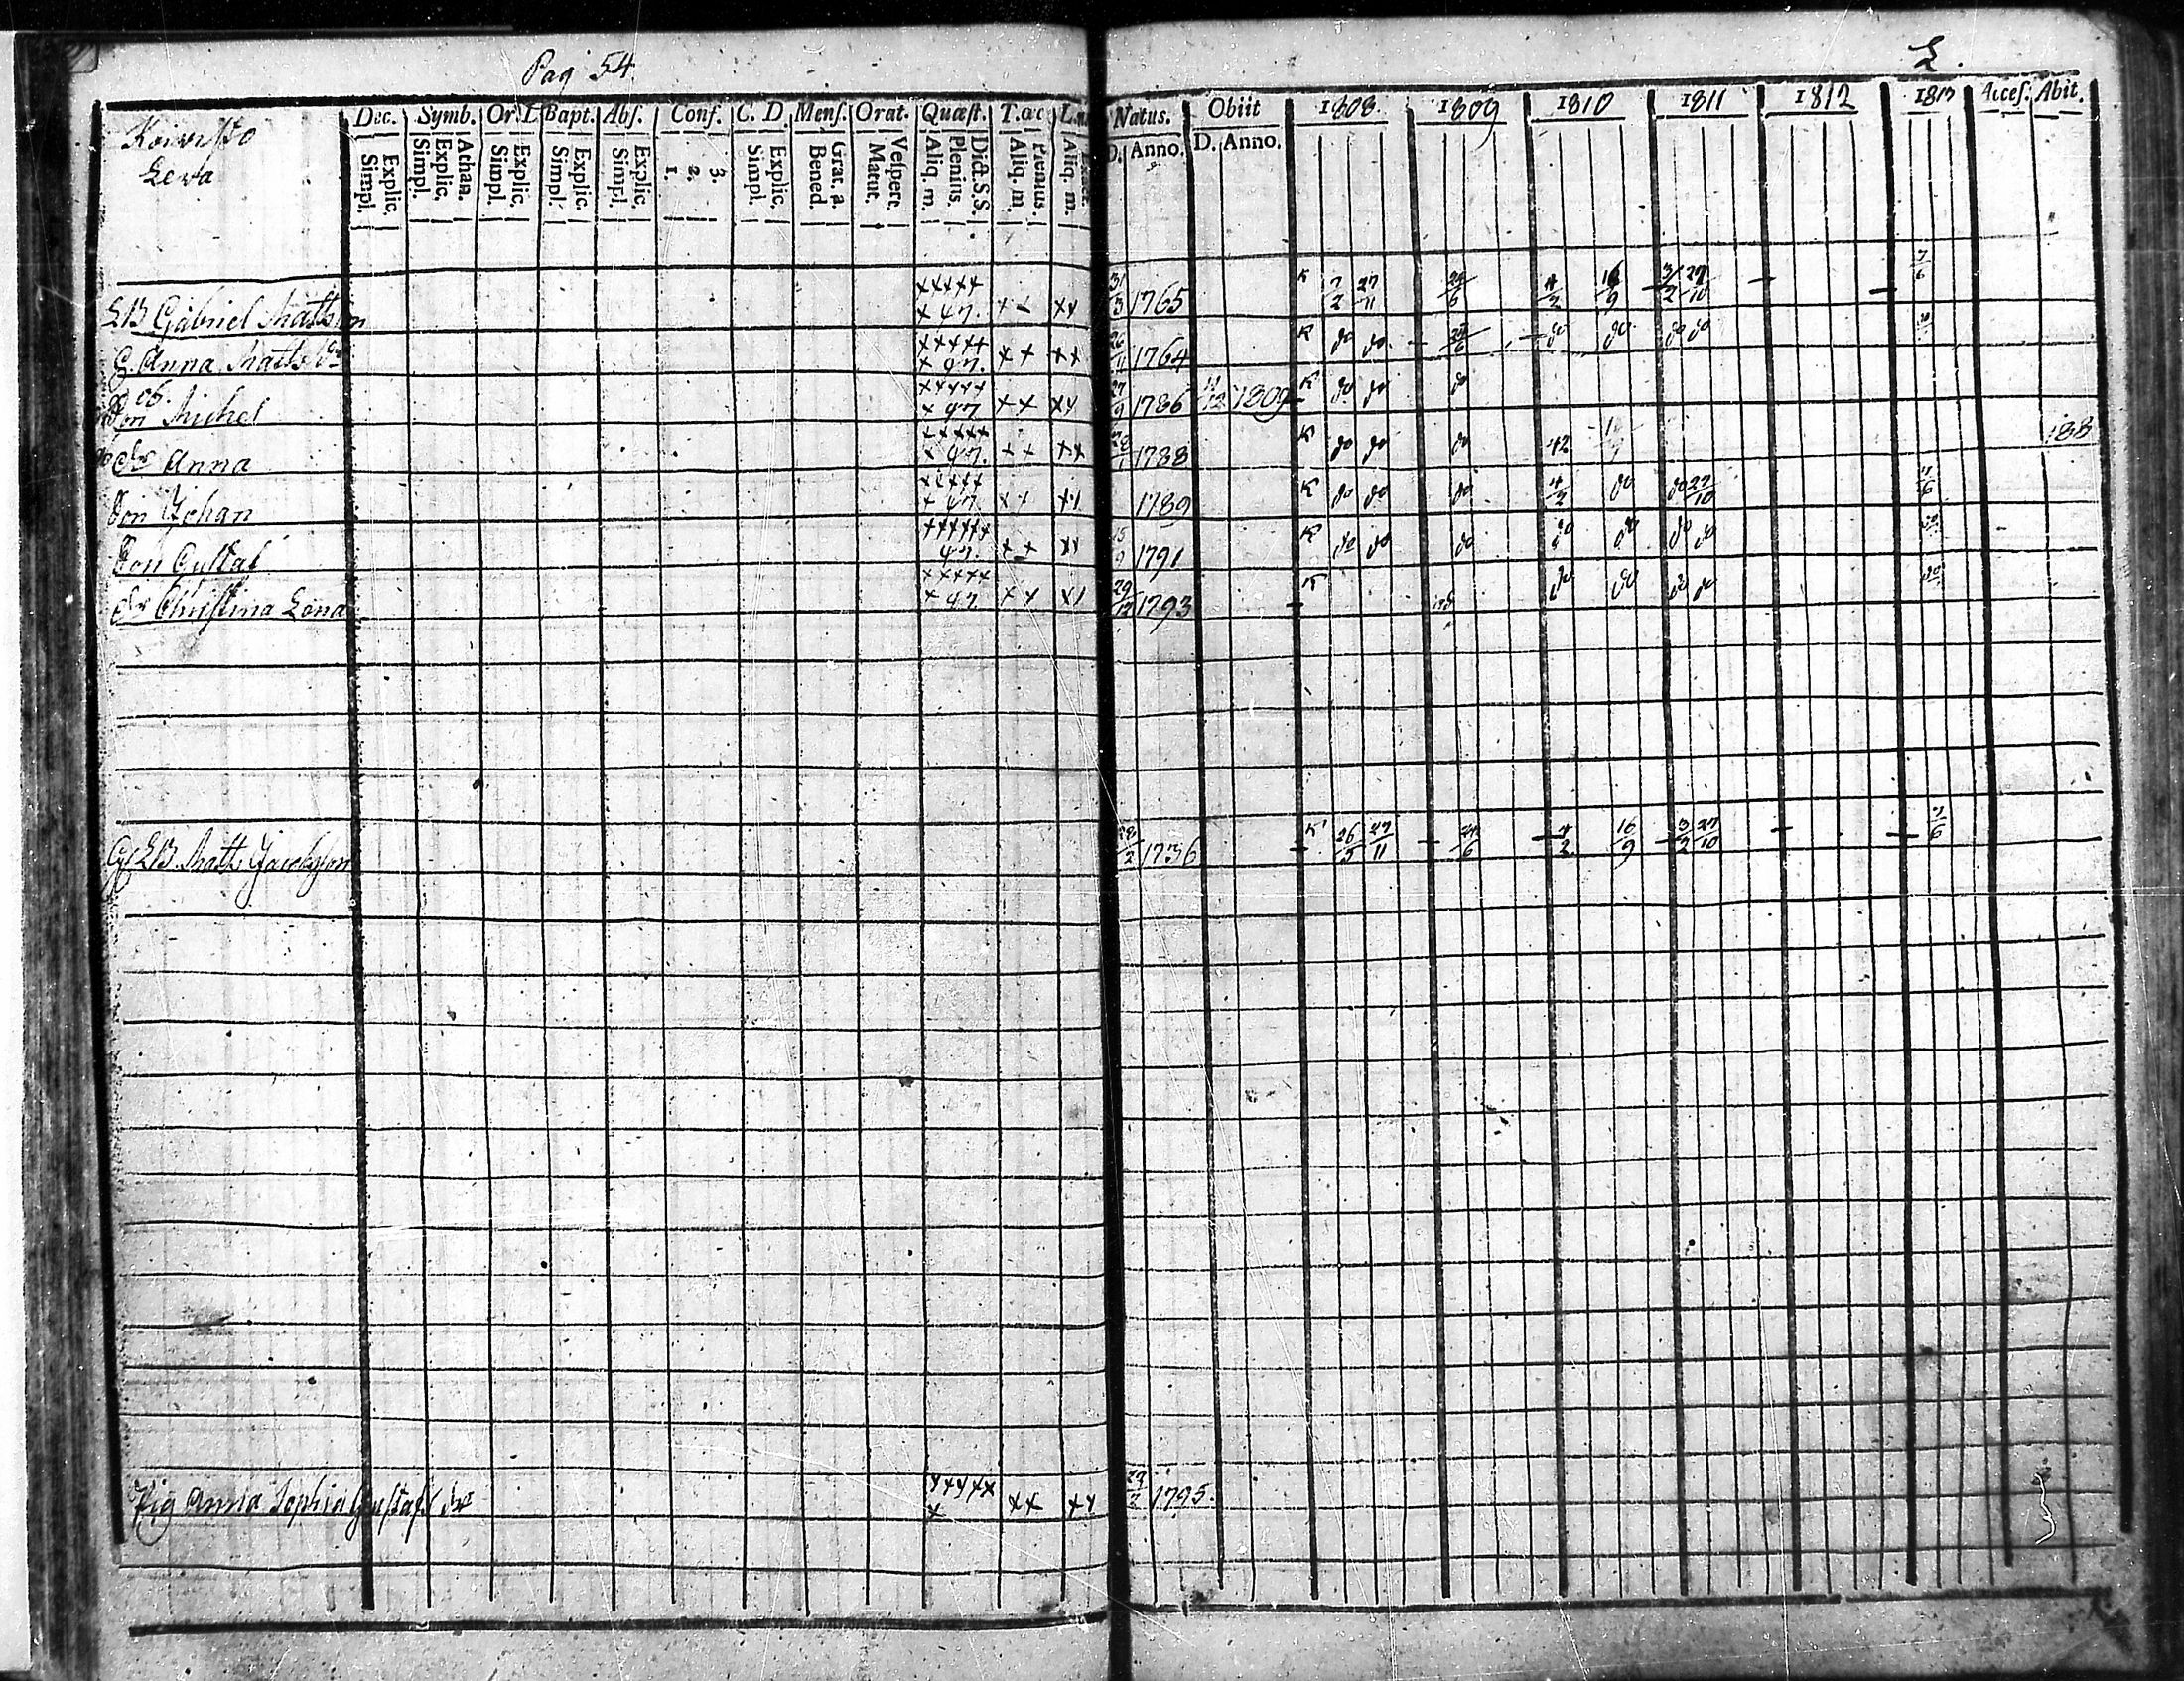 Pag 54
L.
Koivisto
Lewa
Dec. Symb. Or. D Bapt. Abs. Conf. C. D. Mens. Orat. Quæst. T. œc Natus. Obiit 1808. 1809 1810 1811 1812 1813 Acces. Abit.
Explic. Simpl. Athan. Explic. Simpl. Explic. Simpl. Explic. Simpl. Explic. Simpl. 3. 2. 1. Explic. Simpl. Grat. a. Bened. Vespert. Matut. Dict. S.S. Plenius. Aliq. m. Plenius. Aliq. m Aliq. m. D. Anno. D. Anno.
LB Gabriel Matsson xxxxx x 47. xx 31/3 1765 K 7/2 27/11 24/6 4/2 16/9 3/2 27/10 7/6
G. Anna Matsdr xxxxx x 47. xx xx 26/11 1764 K do do 24/6 do do do do do
ob.
Son Michel xxxxx x 47 xx xx 27/9 1786 1809 K do do do
dr Anna xxxxx x 47. xx xx 1788 K do do do 188
Son Johan xxxxx x 47 xx 1789 K do do do 4/2 do do 27/10 7/6
Son Gustaf xxxxxx 47. xx xx 1791 K do do do do do do do do
dr Christina Lena xxxxx x 47 xx 29/12 1793 do do do do do
LB Matts Jacobsson 28/2 1736 K 26/5 27/11 24/6 4/2 16/9 3/2 27/10 7/6
Pig Anna Sophia Gustafsdr xxxxx x xx xx 1795.